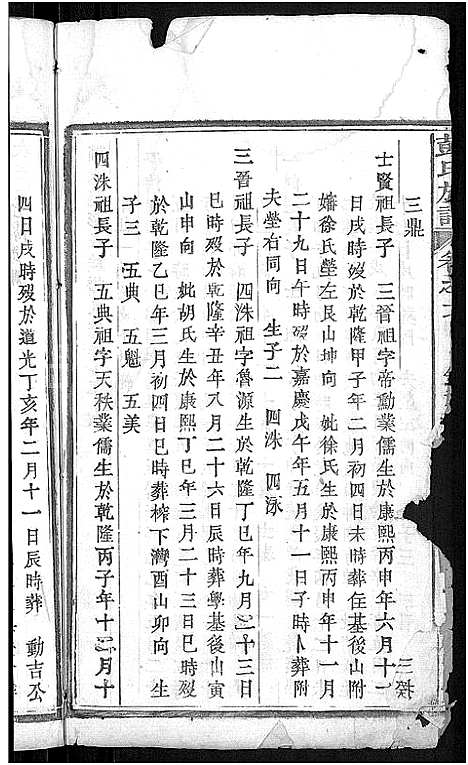 彭氏族譜
三鼎
士賢祖長子　三晉祖字帝勳業儒生於康熙丙申年六月十一
日戌時歿於乾隆甲子年二月初四日未時葬住基後山附
嬸徐氏塋左艮山坤向　妣徐氏生於康熙丙申年十一月
二十九日午時歿於嘉慶戊午年五月十一日子時卜葬附
夫塋右同向　生子二　四洙　四泳
三晉祖長子　四洙祖字魯源生於乾隆丁巳年九月二十三日
巳時歿於乾隆辛丑年八月二十六日辰時葬學基後山寅
山申向　妣胡氏生於康熙丁巳年三月二十三日辰時歿
於乾隆乙巳年三月初四日巳時葬榨下灣酉山卯向　生
子三　五典　五魁　五美
四洙祖長子　五典祖字天秩業儒生於乾隆丙子年十二月十
四日戌時歿於道光丁亥年二月十一日辰時葬　動吉公